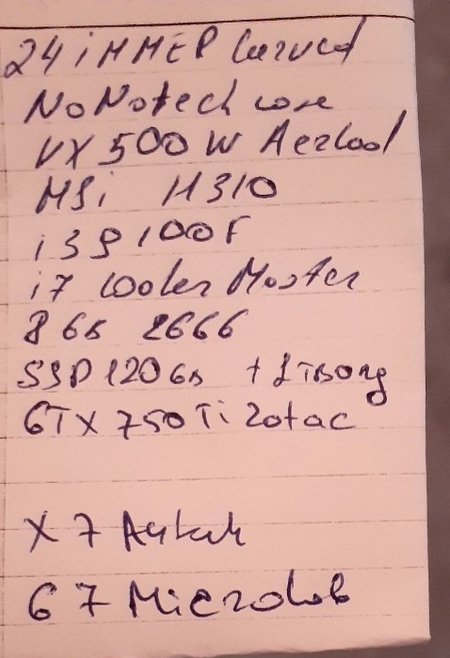 24 iMMER Curved
NaNotech core
VX 500W Aerkool
MSi H310
i3 9100F
i7 Cooler Master
8 GB 2666
SSD 120 GB + 1TB
GTX 750Ti Zotac
X7
G7 Microlab